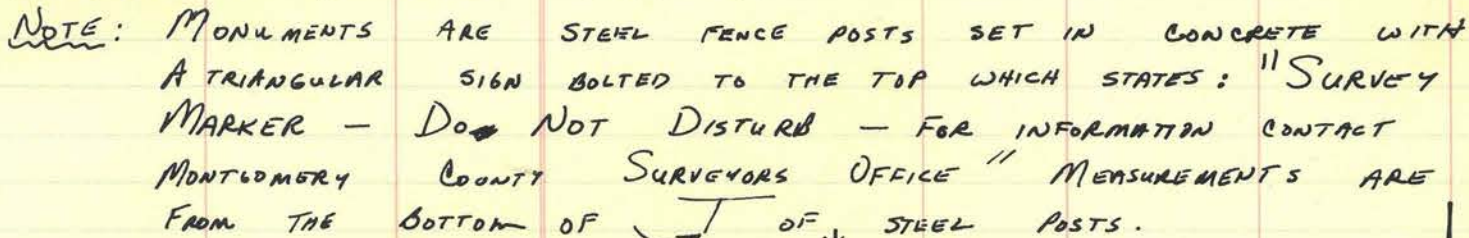 NOTE: MONUMENTS ARE STEEL FENCE POSTS SET IN CONCRETE WITH
A TRIANGULAR SIGN BOLTED TO THE TOP WHICH STATES: "SURVEY
MARKER — DO NOT DISTURB — FOR INFORMATION CONTACT
MONTGOMERY COUNTY SURVEYORS OFFICE" MEASUREMENTS ARE
FROM THE BOTTOM OF T OF STEEL POSTS.